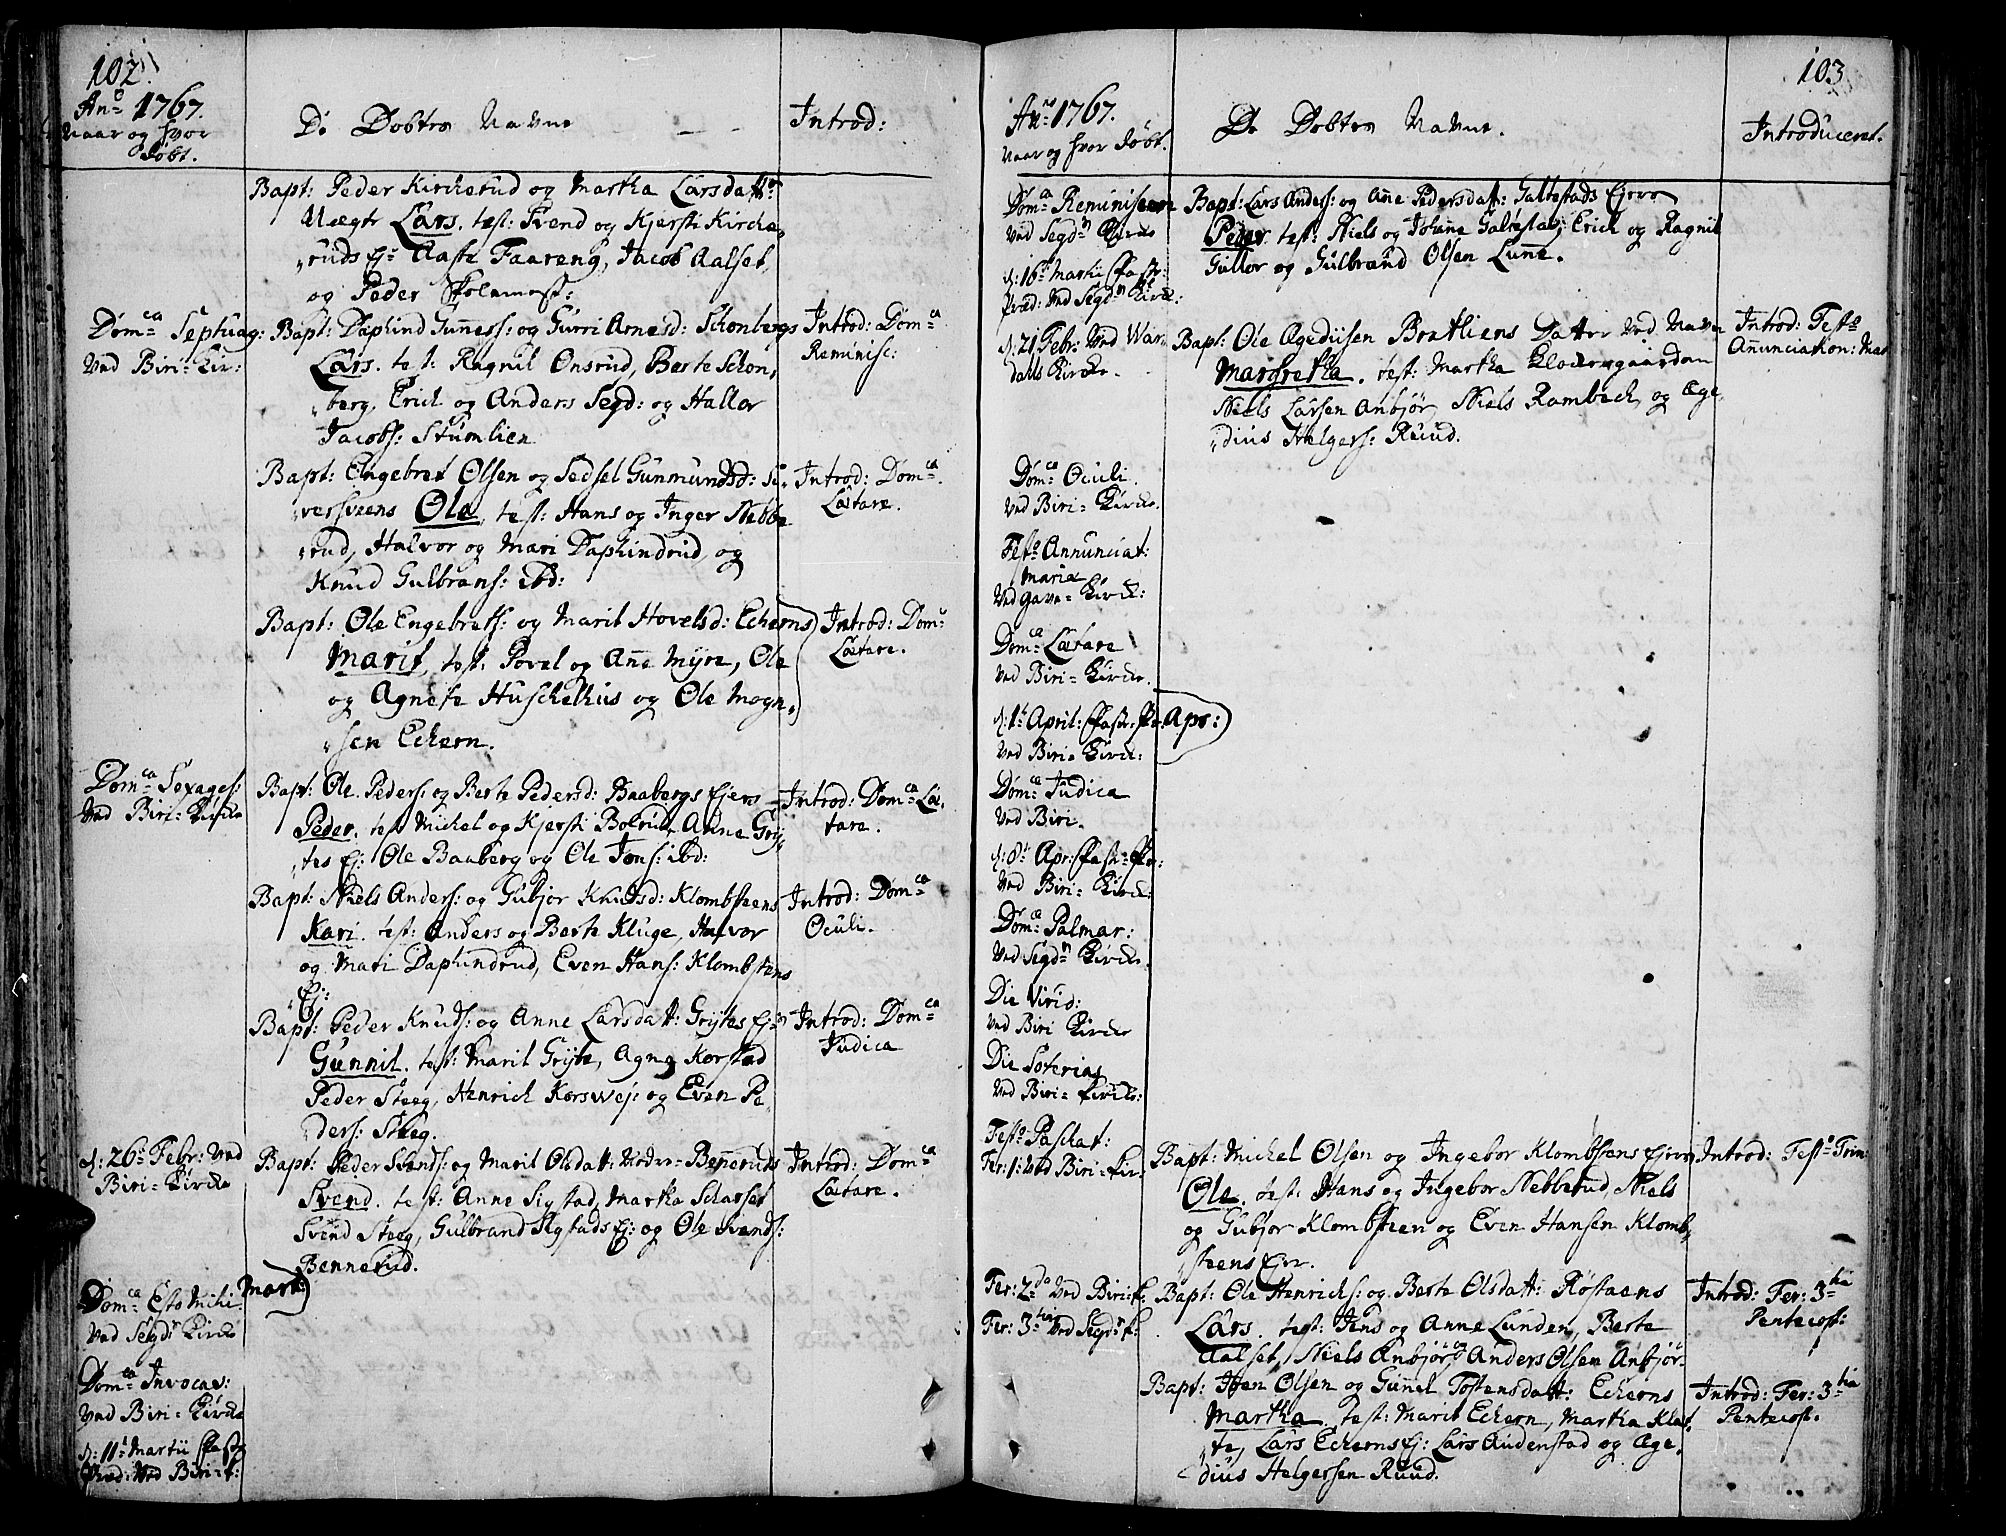 102.
An: 1767.
Naar og hvor
døbt.
De Døbtes Navne
Introd:
Bapt: Peder Kircherud og Martha Larsdatt:
Uægte Lars. test: Svend og Kjersti Kirche„
„ruds Ej: Aaste Faareng, Jacob Aalset,
og Peder Skolemest:
Dom:ca Septuag:
Ved Biri-Kir:
Bapt: Daphind Guness: og Gurri Arnesd: Schonbergs
Lars. test: Ragnil Onsrud, Berte Schon„
„berg, Erich og Anders Segd: og Hallor
Jacobs: Stumlien
Introd: Dom:ca
Reminisc:
Bapt: Engebret Olsen og Sedsel Gunmundsd: Si„
„versveens Ole, test: Hans og Inger Nebbe„
„rud, Halvor og Mari Daphindrud, og
Knud Gulbrans: ibd:
Introd: Dom:ca
Lætare.
Bapt: Ole Engebrets: og Marit Hovelsd: Echerns
Marit, test: Povel og Anne Myre, Ole
og Agnete Huschelhus og Ole Mogn„
„sen Echern.
Introd: Dom:
Lætare.
Dom:ca Sexages:
Ved Biri-Kirche
Bapt: Ole Peders: og Berte Pedersd: Baabergs Ejers
Peder. test: Michel og Kjersti Bolrud, Anne Gry„
„tes Ej: Ole Baaberg og Ole Jons: ibd:
Introd: Dom:ca Læ„
tare.
Bapt: Niels Anders: og Gubjor Knudsd: Klombsteens
Kari. test: Anders og Berte Kluge, Halvor
og Mari Daphindrud, Even Hans: Klombstens
Ej:
Introd: Dom:ca
Oculi.
Bapt: Peder Knuds: og Anne Larsdatt: Grytes Ej:
Gunnil. test: Marit Gryte, Agne Korstad
Peder Steeg, Henrich Korswej: og Even Pe„
„ders: Steeg.
Introd: Dom:ca
Judica
d: 26: Febr: Ved
Biri-Kirche
Bapt: Peder Svends: og Marit Olsdatt: Nedre-Benneruds
Svend. test: Anne Sigstad, Martha Scharset
Svend Steeg, Gulbrand Sigstads Ej: og Ole Svends:
Bennerud.
Introd: Dom:ca
Lætare.
Marti:
Dom:ca Esto Mihi
Ved Segd: Kirche
Dom:ca Invocav:
Ved Biri-Kirche
d: 11: Martii Faste
Præd: Ved Biri-K:
103
An: 1767.
Naar og hvor døbt.
De Døbtes Navne.
Introduceret.
Dom:ca Reminiscere
Ved Segd: Kirche
Bapt: Lars Anders: og Anne Pedersdatt: Galtestads Ejere
Peder. test: Niels og Johanne Galtestad, Erich og Ragnil
Gullor og Gulbrand Olsen Lunne.
d: 16: Martii Fast:
Præd: Ved Segd: Kirch:
d: 21 Febr: Ved War„
dals Kirche.
Bapt: Ole Ægediisen Bratliens Datter Ved Navn
Margretha. test: Martha Klochergaarden
Niels Larsen Anbjør, Niels Rambech, og Æge„
„dius Helgers: Ruud.
Introd: Festo
Annunciation: Mar
Dom:ca Oculi.
Ved Biri-Kirche.
Festo Annunciat:
Mariæ
Ved Gave-Kirch:
Dom:ca Lætare
Ved Biri-Kirche.
d: 1: April: Fast: Pr: Apr:
Ved Biri-Kirch:
Dom:ca Judica
Ved Biri.
d: 8: Apr: Fast-Pr:
Ved Biri-Kirch:
Dom:ca Palmar:
Ved Segd: Kirche.
Die Virid:
Ved Biri Kirche
Die Soterias
Ved Biri-Kirch:
Festo Paschat:
Fer: 1: Ved Biri-Kir.
Bapt: Michel Olsen og Ingebor Klombstens Ejere
Ole. test: Hans og Ingebor Nebberud, Niels
og Gubjor Klombsteen og Even Hansen Klomb„
„steens Ejer.
Introd: Festo Trin
Fer: 2:da Ved Biri-K.
Fer: 3:tia Ved Segd: K.
Bapt: Ole Henrichs: og Berte Olsdatt: Røstaens
Lars. test: Jens og Anne Lunden, Berte
Aalset, Niels Anbjør, og Anders Olsen Anbjør.
Introd: Fer: 3:tia
Pentecost:
Bapt: Iten Olsen og Gunnil Tostensdatt: Echerns
Martha. test: Marit Echern, Martha Klat„
„te, Lars Echerns Ej: Lars Audenstad og Æge„
„dius Helgersen Ruud.
Introd: Fer: 3:tia
Pentecost.